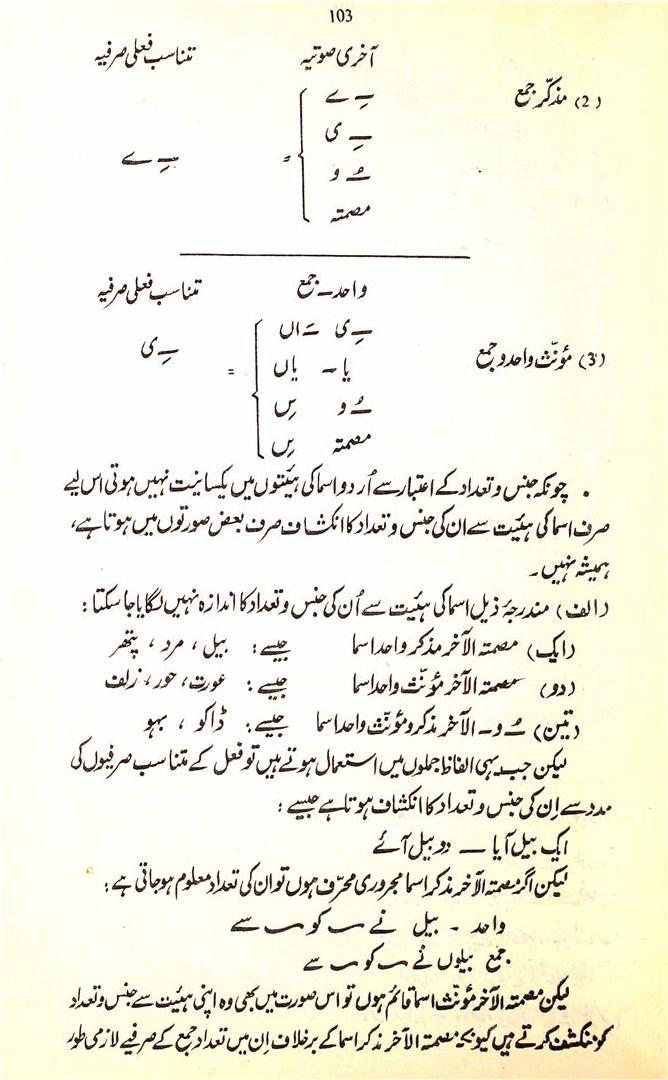 103
آخری صوتیہ تناسب فعلی صرفیہ
(2) مذکّر جمع
ـِ ے
ـِ ی
ـُ و
مصمتہ
= ـِ ے
واحد ـ جمع تناسب فعلی صرفیہ
(3) مؤنّث واحد و جمع
ـِ ی ـَ اں
یا ـ یاں
ـُ و یں
مصمتہ یں
= ـِ ی
چونکہ جنس و تعداد کے اعتبار سے اُردو اسما کی ہیئتوں میں یکسانیت نہیں ہوتی اس لیے
صرف اسما کی ہیئت سے ان کی جنس و تعداد کا انکشاف صرف بعض صورتوں میں ہوتا ہے،
ہمیشہ نہیں۔
(الف) مندرجۂ ذیل اسما کی ہیئت سے اُن کی جنس و تعداد کا اندازہ نہیں لگایا جا سکتا :
(ایک) مصمتہ الآخر مذکر واحد اسما جیسے : بیل ، مرد ، پتھر
(دو) مصمتہ الآخر مؤنّث واحد اسما جیسے : عورت ، حور ، زلف
(تین) ـُ و ـ الآخر مذکر و مؤنّث واحد اسما جیسے : ڈاکو ، بہو
لیکن جب یہی الفاظ جملوں میں استعمال ہوتے ہیں تو فعل کے متناسب صرفیوں کی
مدد سے اِن کی جنس و تعداد کا انکشاف ہوتا ہے جیسے :
ایک بیل آیا — دو بیل آئے
لیکن اگر مصمتہ الآخر مذکر اسما مجروری محرّف ہوں تو ان کی تعداد معلوم ہو جاتی ہے :
واحد ۔ بیل نے ــ کو ــ سے
جمع بیلوں نے ــ کو ــ سے
لیکن مصمتہ الآخر مؤنّث اسما قائم ہوں تو اس صورت میں بھی وہ اپنی ہیئت سے جنس و تعداد
کو منکشف کرتے ہیں کیونکہ مصمتہ الآخر مذکر اسما کے برخلاف اِن میں تعداد جمع کے صرفیے لازمی طور